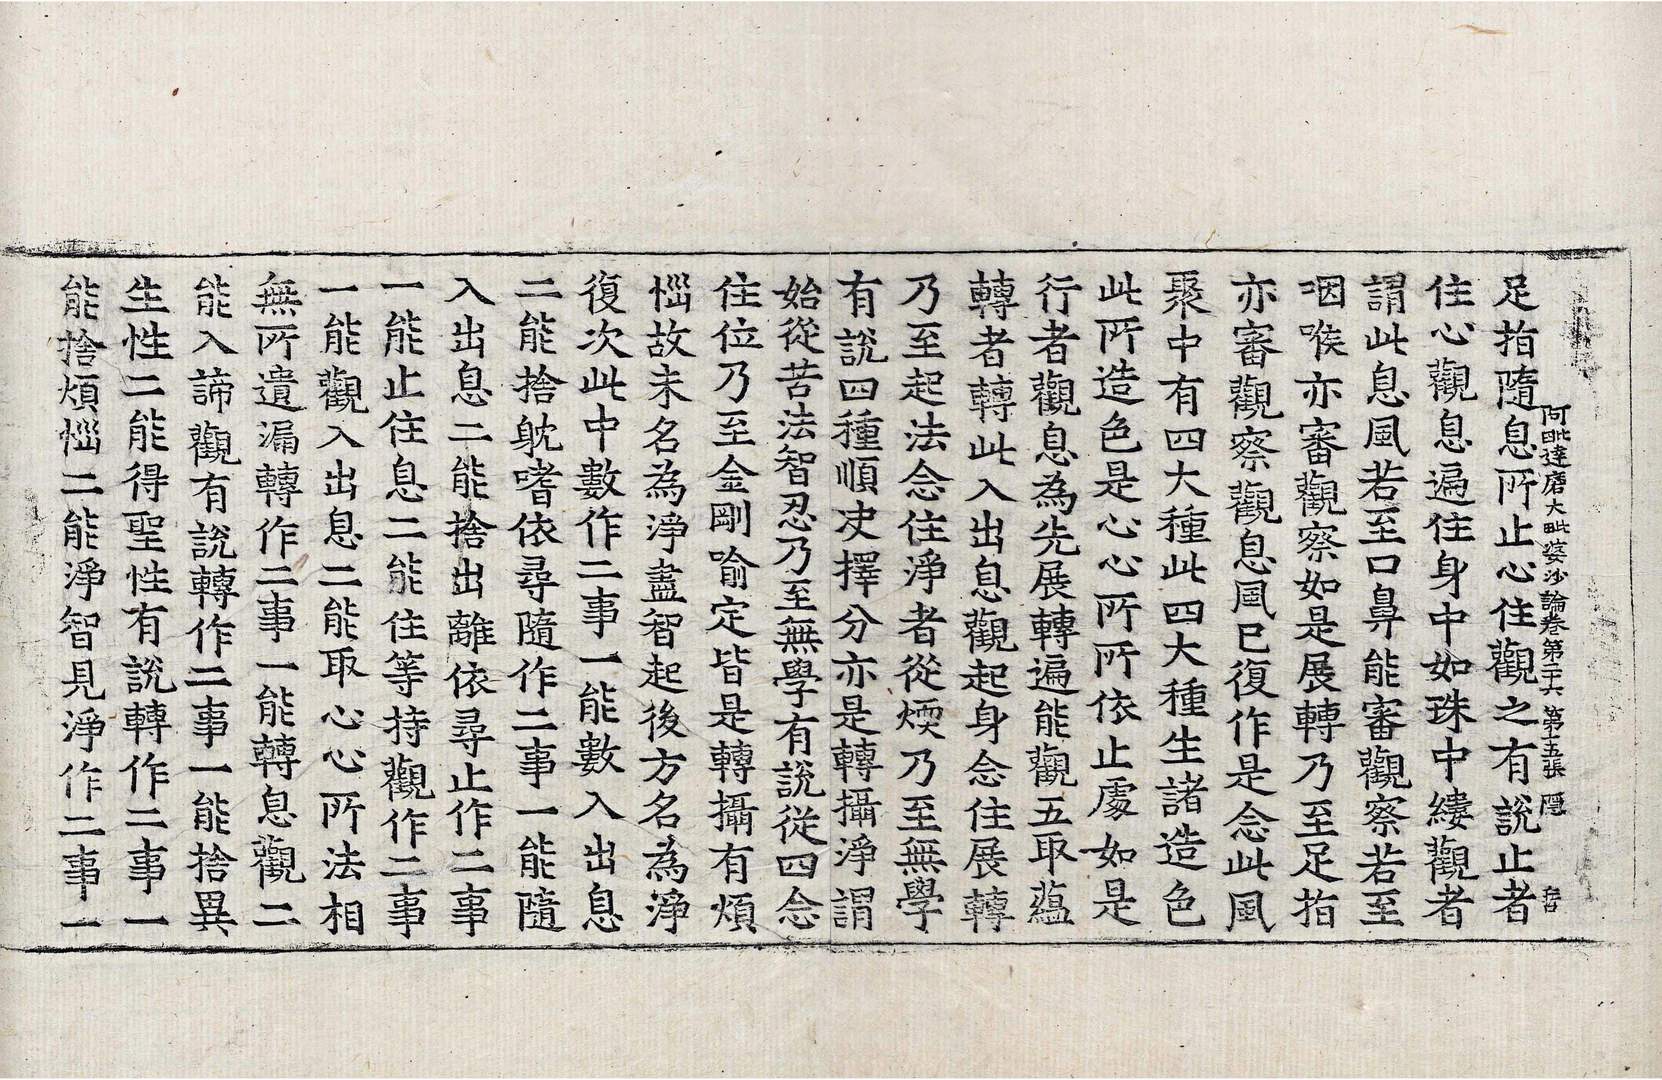 阿毗達磨大毗婆沙論卷第二十六 第五張 隱
足指隨息所止心住觀之有說止者
住心觀息遍住身中如珠中縷觀者
謂此息風若至口鼻能審觀察若至
咽喉亦審觀察如是展轉乃至足指
亦審觀察觀息風已復作是念此風
聚中有四大種此四大種生諸造色
此所造色是心心所所依止處如是
行者觀息為先展轉遍能觀五取蘊
轉者轉此入出息觀起身念住展轉
乃至起法念住淨者從煗乃至無學
有說四種順決擇分亦是轉攝淨謂
始從苦法智忍乃至無學有說從四念
住位乃至金剛喻定皆是轉攝有煩
惱故未名為淨盡智起後方名為淨
復次此中數作二事一能數入出息
二能捨躭嗜依尋隨作二事一能隨
入出息二能捨出離依尋止作二事
一能止住息二能住等持觀作二事
一能觀入出息二能取心心所法相
無所遺漏轉作二事一能轉息觀二
能入諦觀有說轉作二事一能捨異
生性二能得聖性有說轉作二事一
能捨煩惱二能淨智見淨作二事一